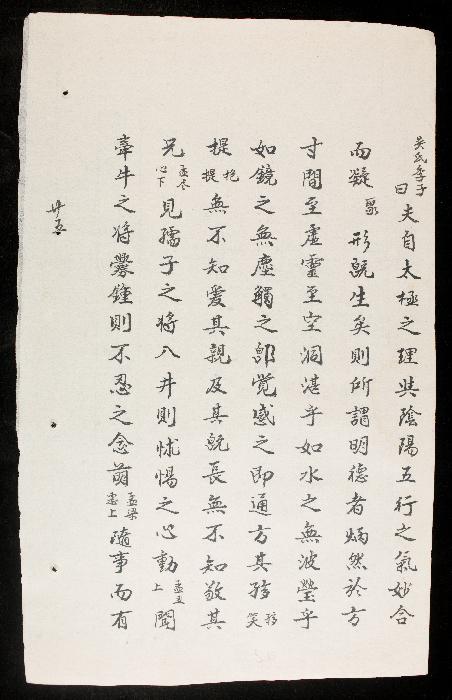 吴氏季子曰夫自太極之理與陰陽五行之氣妙合
而凝聚形既生矣則所謂明德者炳然於方
寸間至虛靈至空洞湛乎如水之無波瑩乎
如鏡之無塵觸之即覺感之即通方其孩孩笑
提抱提無不知愛其親及其既長無不知敬其
兄孟尽心下見孺子之將入井則怵惕之心動孟丑上聞
牽牛之將釁鍾則不忍之念萌孟梁惠上隨事而有
廿五